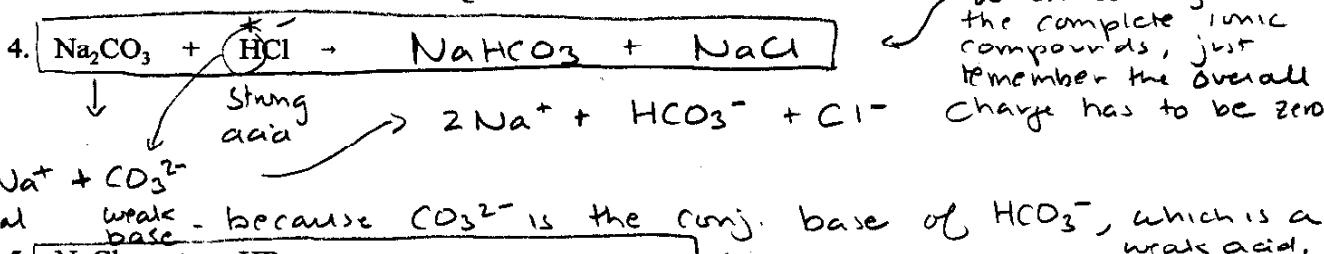 the complete ionic
4. Na₂CO₃ + HCl → NaHCO3 + NaCl
compounds, just
remember the overall
charge has to be zero
strong
acid
2Na⁺ + HCO3⁻ + Cl⁻
Na⁺ + CO₃²⁻
weak base - because CO3²⁻ is the conj. base of HCO3⁻, which is a
weak acid.